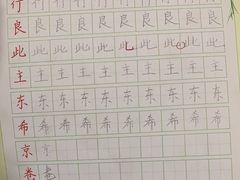 行行行行行行行行行
良良良良良良良良良
此此此此此此此此此
主主主主主主主主主
东东东东东东东东东
希希希希希希希希希
京京
卷卷